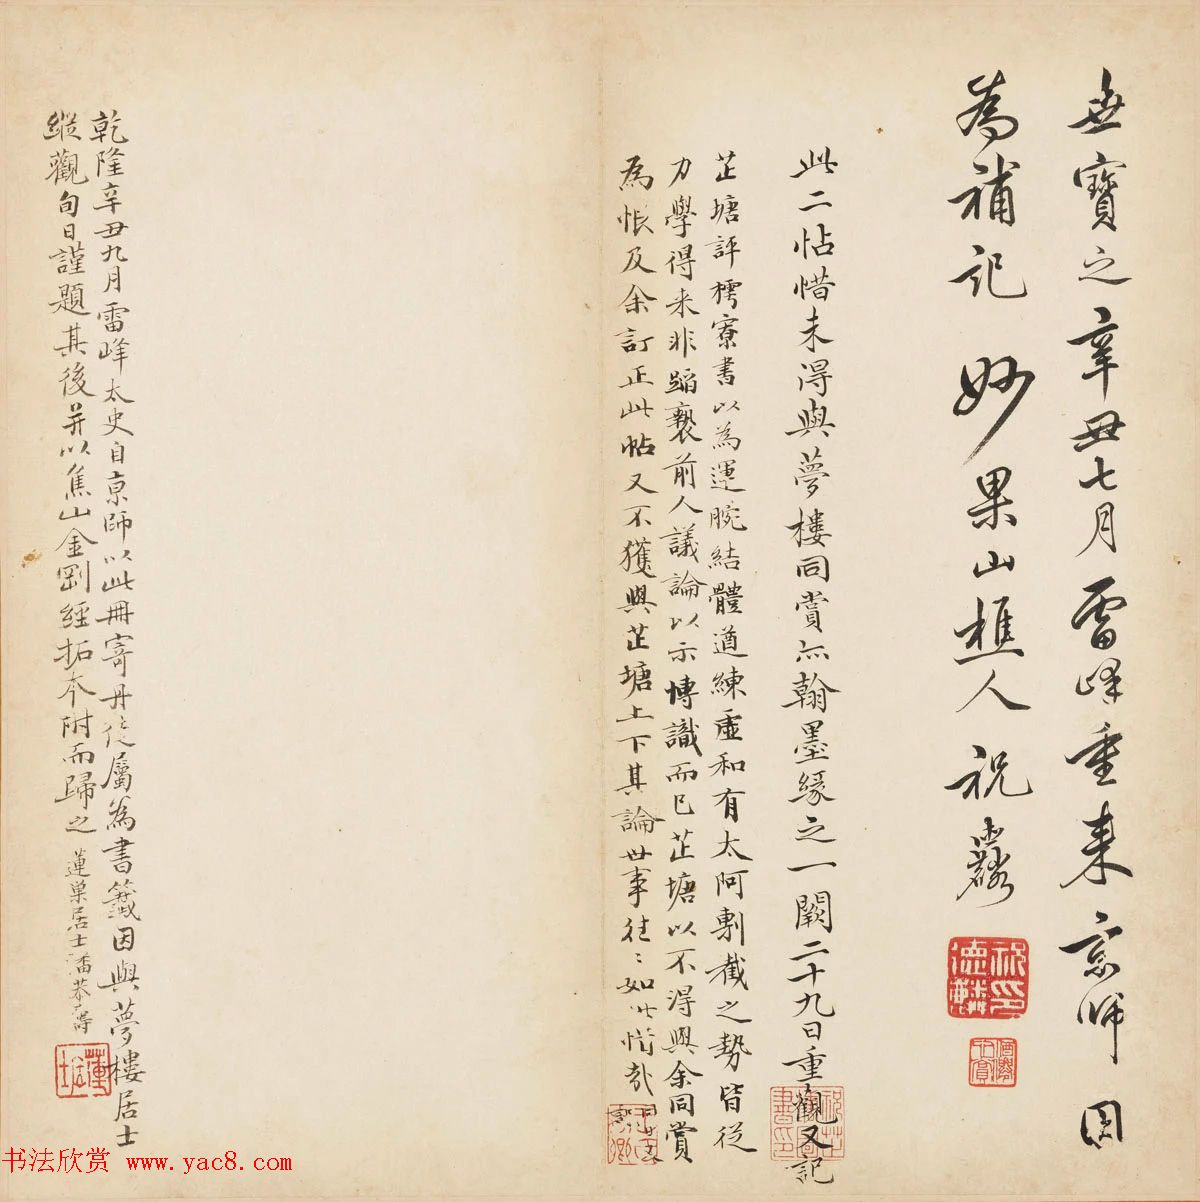 世寶之辛丑七月雷峰重來京師因
為補記 妙果山樵人祝麟
此二帖惜未得與夢樓同賞亦翰墨緣之一闕二十九日重觀又記
芷塘評樗寮書以為運腕結體遒練虛和有太阿剸截之勢皆從
力學得來非蹈襲前人議論以示博識而已芷塘以不得與余同賞
為悵及余訂正此帖又不獲與芷塘上下其論世事往〻如此惜哉
乾隆辛丑九月雷峰太史自京師以此冊寄丹徒屬為書籤因與夢樓居士
縱觀旬日謹題其後并以焦山金剛經拓本附而歸之 蓮巢居士潘恭壽
书法欣赏 www.yac8.com